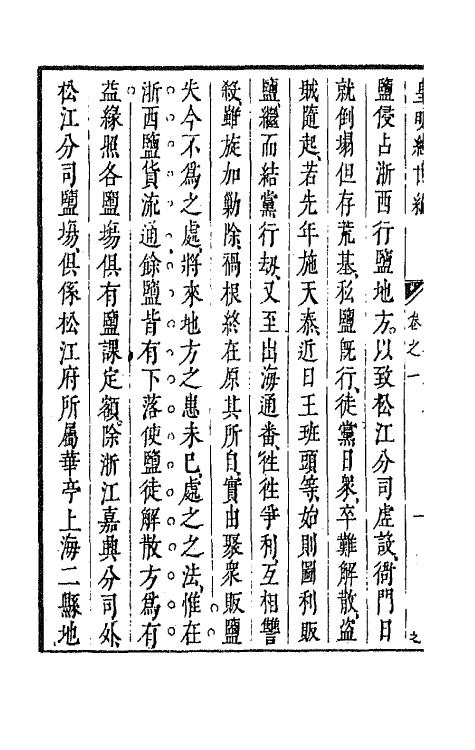 皇明經世編
卷之一
鹽侵占浙西行鹽地方以致松江分司虛設衙門日
就倒塌但存荒基私鹽既行徒黨日衆卒難解散盜
賊隨起若先年施天泰近日王班頭等始則圖利販
鹽繼而結黨行刼又至出海通番徃徃爭利互相讐
殺雖旋加勦除禍根終在原其所自實由聚衆販鹽
失今不為之處將來地方之患未已處之之法惟在
浙西鹽貨流通餘鹽皆有下落使鹽徒解散方為有
益緣照各鹽塲俱有鹽課定額除浙江嘉興分司外
松江分司鹽塲俱係松江府所屬華亭上海二縣地